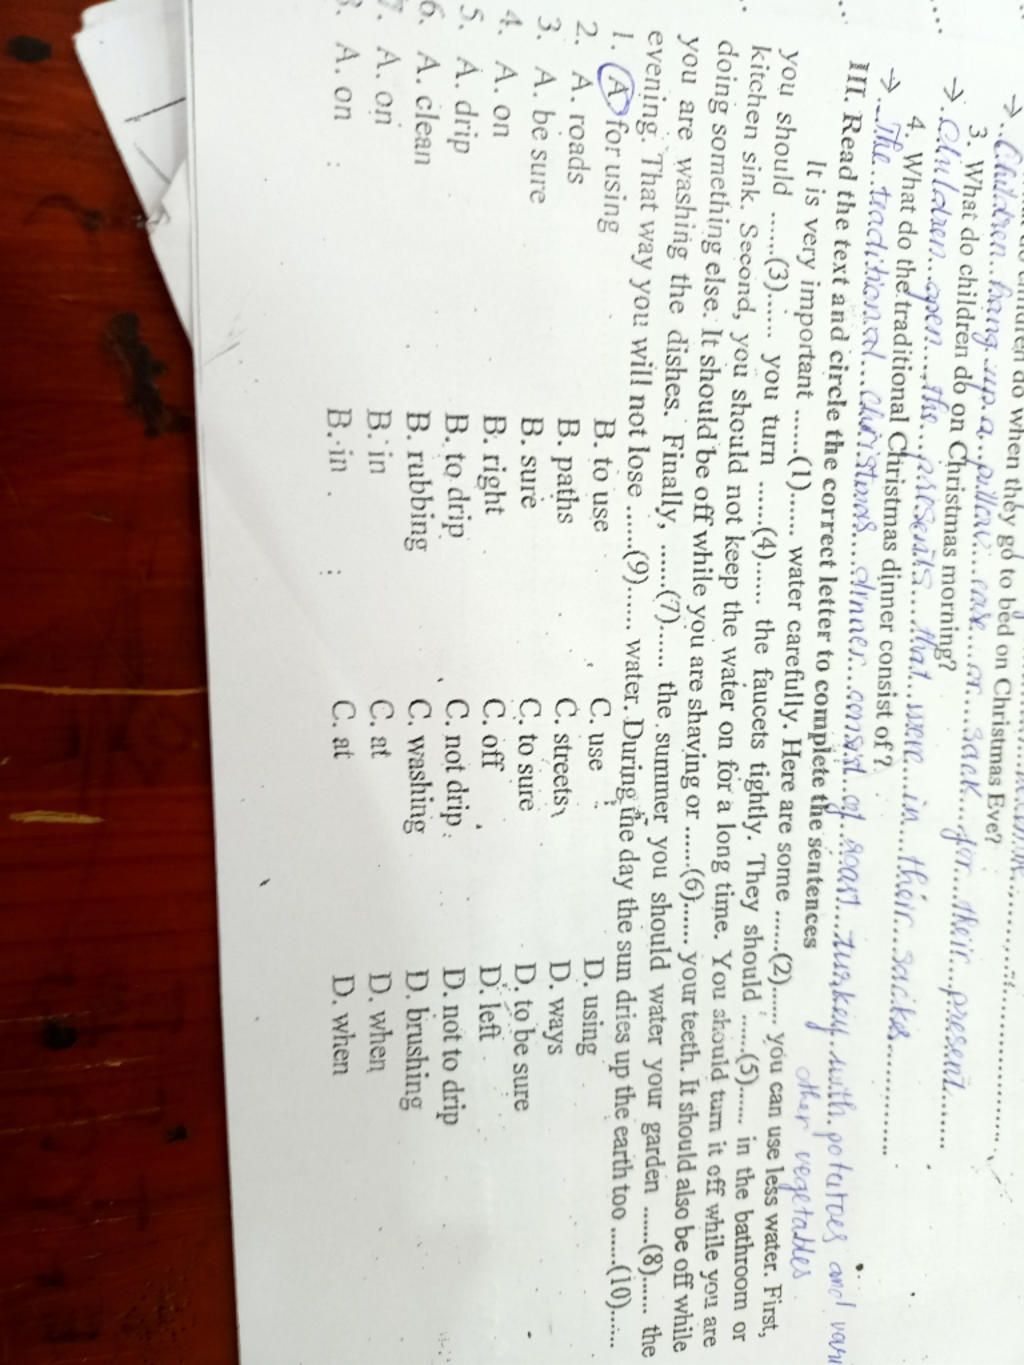 children do when they go to bed on Christmas Eve?
→ Children hang up a pillow case or sack for their present
3. What do children do on Christmas morning?
→ Children open the presents that were in their sacks
4. What do the traditional Christmas dinner consist of?
→ The traditional Christmas dinner consist of roast turkey with potatoes and
other vegetables
III. Read the text and circle the correct letter to complete the sentences
It is very important ......(1)...... water carefully. Here are some ......(2)...... you can use less water. First,
you should ......(3)...... you turn ......(4)...... the faucets tightly. They should ......(5)...... in the bathroom or
kitchen sink. Second, you should not keep the water on for a long time. You should turn it off while you are
doing something else. It should be off while you are shaving or ......(6)...... your teeth. It should also be off while
you are washing the dishes. Finally, ......(7)...... the summer you should water your garden ......(8)...... the
evening. That way you will not lose ......(9)...... water. During the day the sun dries up the earth too ......(10)......
1. A for using B. to use C. use D. using
2. A. roads B. paths C. streets D. ways
3. A. be sure B. sure C. to sure D. to be sure
4. A. on B. right C. off D. left
5. A. drip B. to drip C. not drip D. not to drip
6. A. clean B. rubbing C. washing D. brushing
7. A. on B. in C. at D. when
8. A. on B. in C. at D. when